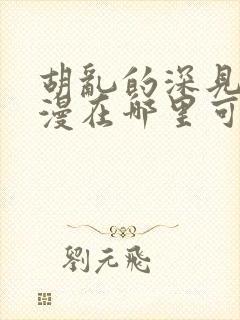 胡亂的深見
漫在哪里可
劉元飛